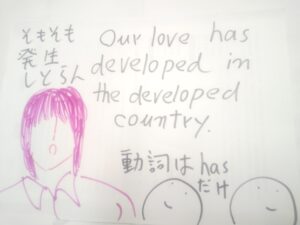 そもそも
発生
しとらん
Our love has
developed in
the developed
country.
動詞は has
だけ